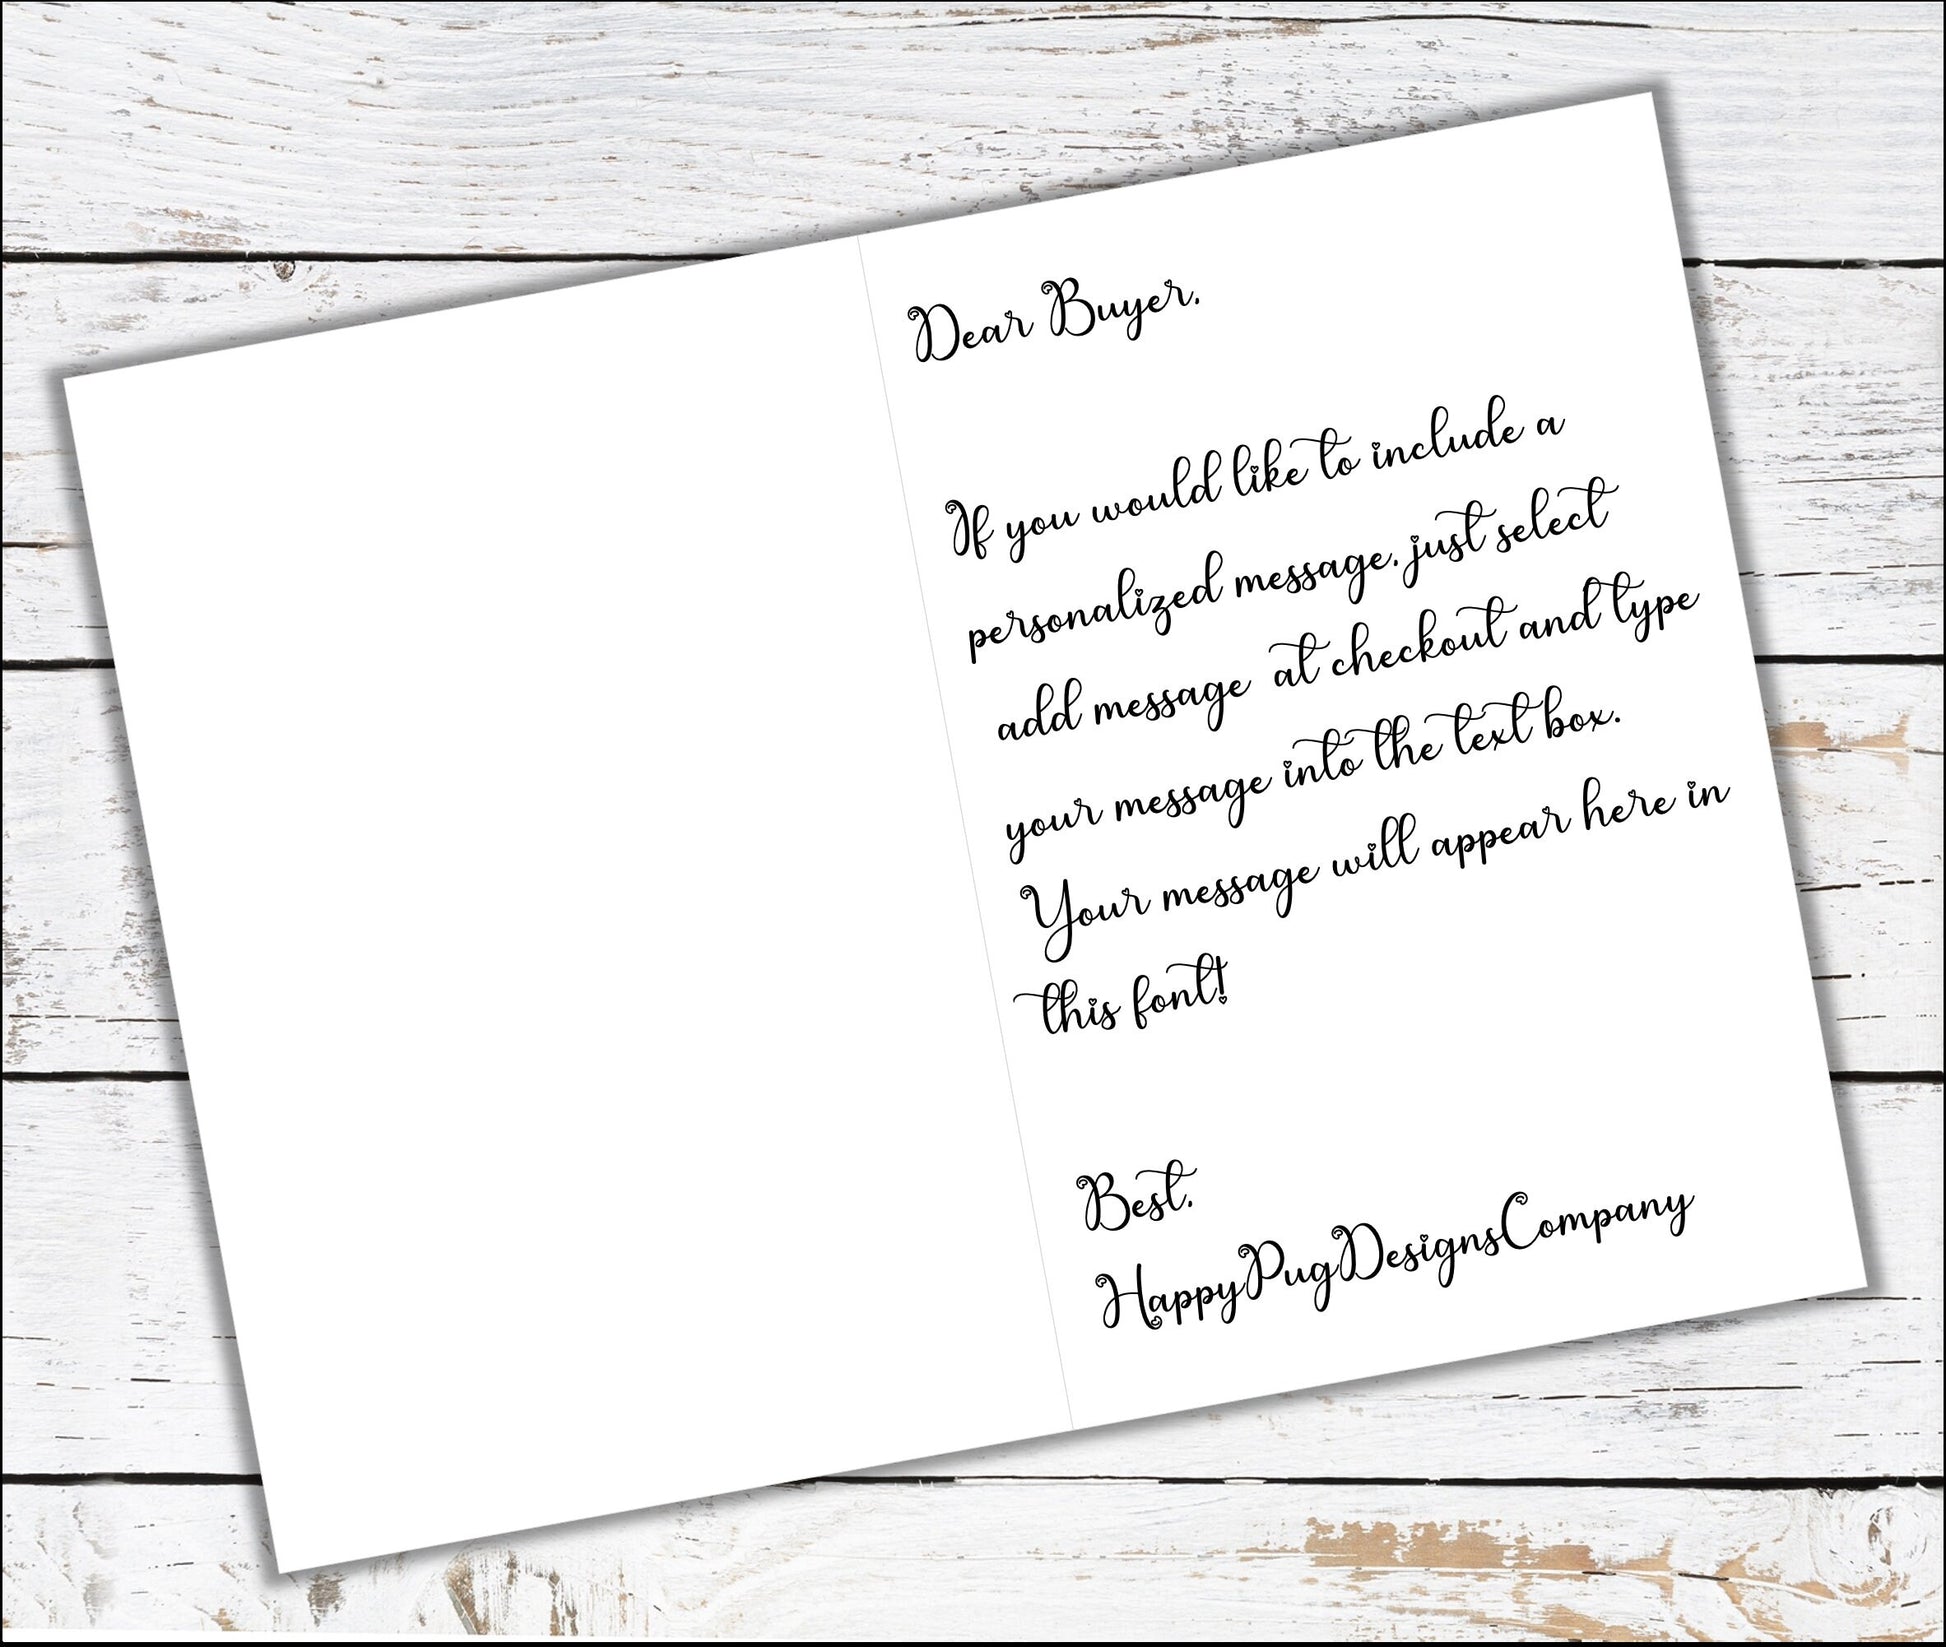 Dear Buyer,
If you would like to include a
personalized message, just select
add message at checkout and type
your message into the text box.
Your message will appear here in
this font!
Best,
HappyPugDesignsCompany